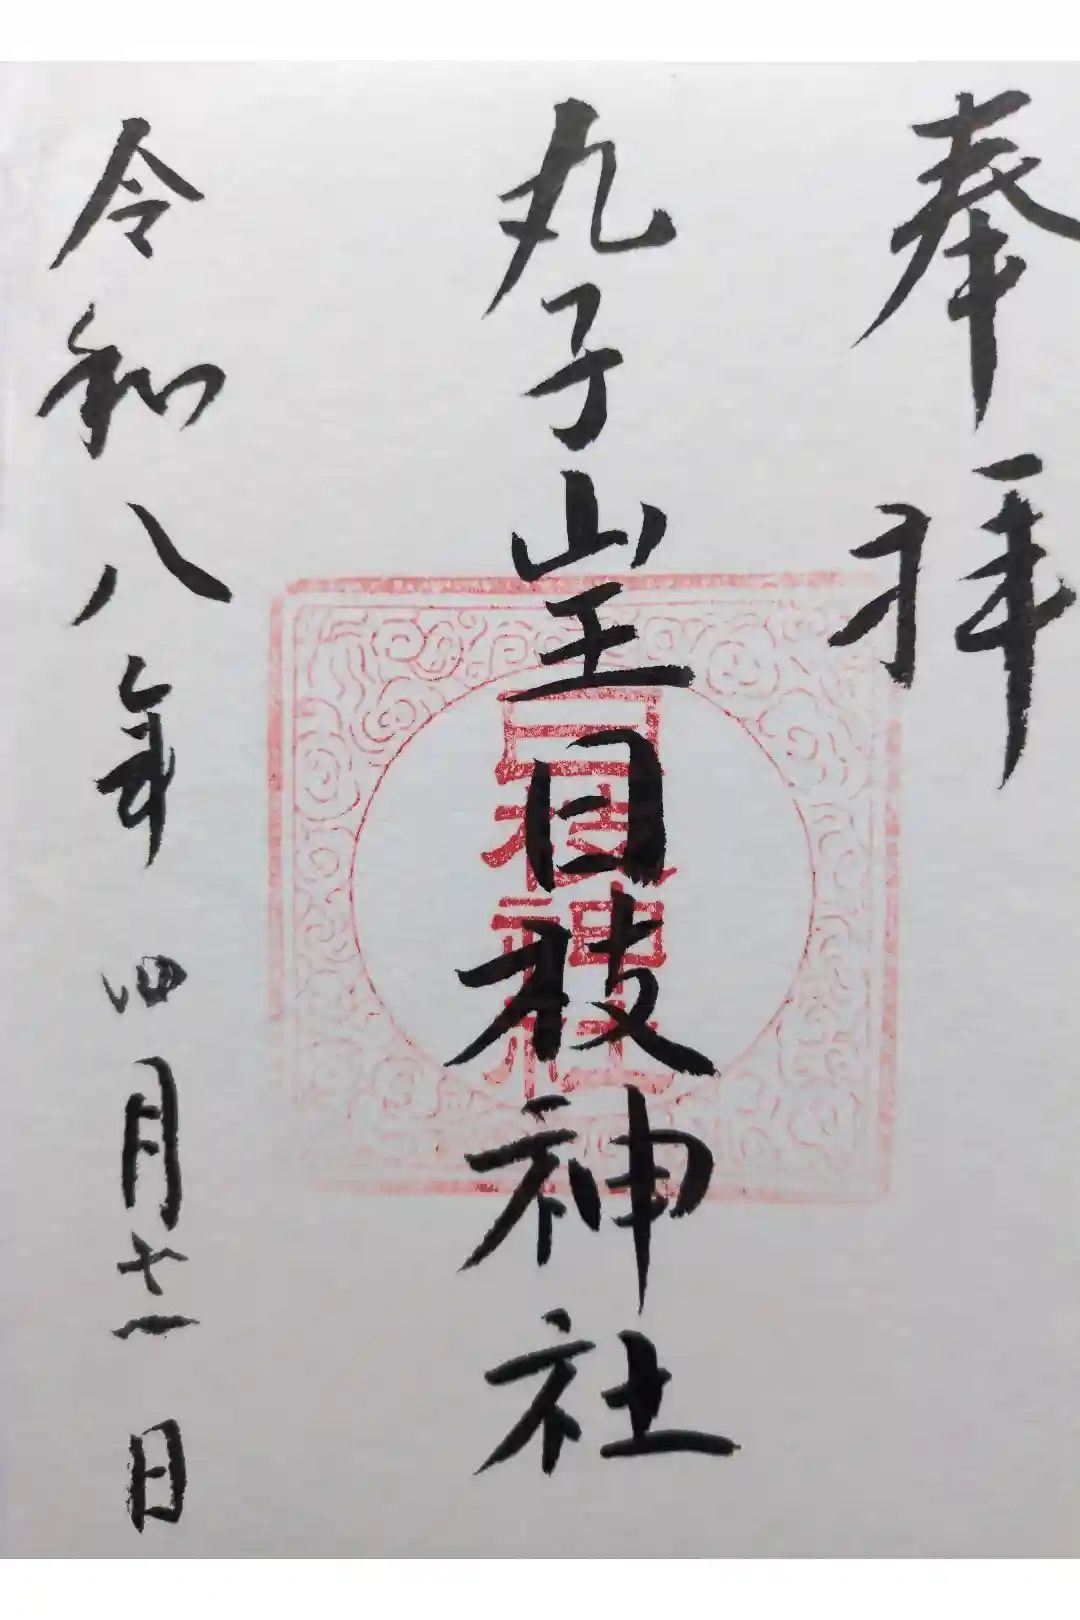 奉拝
丸子山王日枝神社
日枝神社
令和八年四月十一日